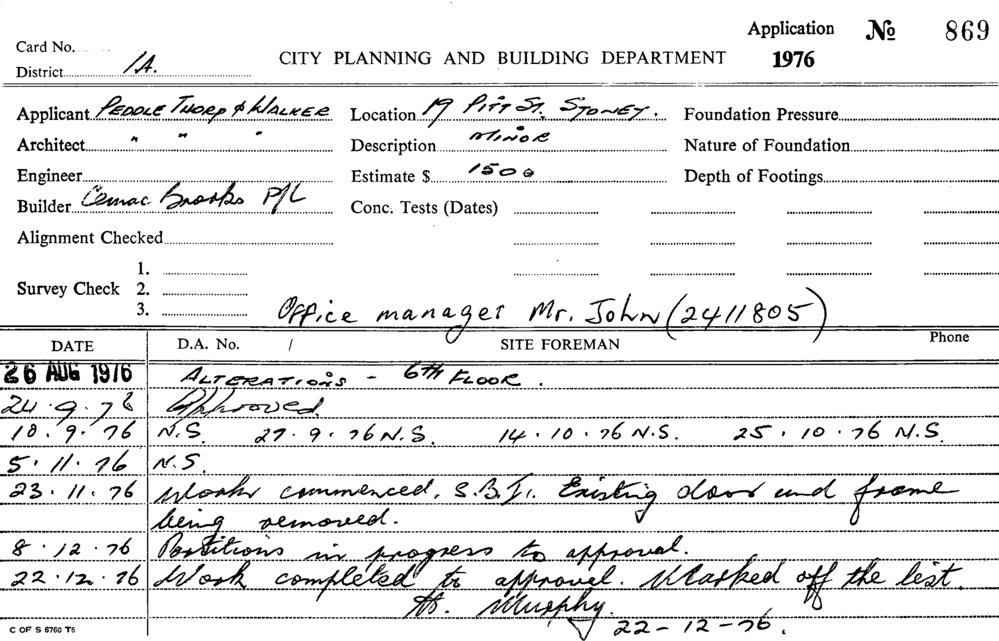 Application No 869
Card No.
CITY PLANNING AND BUILDING DEPARTMENT 1976
District 1A.
Applicant PEDDLE THORP & WALKER Location 19 PITT ST. SYDNEY. Foundation Pressure
Architect " " " Description MINOR Nature of Foundation
Engineer Estimate $ 1500 Depth of Footings
Builder Cemac Brooks P/L Conc. Tests (Dates)
Alignment Checked
1.
Survey Check 2.
3.
Office manager Mr. John (2411805)
DATE D.A. No. / SITE FOREMAN Phone
26 AUG 1976 ALTERATIONS - 6TH FLOOR.
24.9.76 Approved.
10.9.76 N.S. 27.9.76 N.S. 14.10.76 N.S. 25.10.76 N.S.
5.11.76 N.S.
23.11.76 Work commenced. S.B.I. Existing door and frame
being removed.
8.12.76 Partitions in progress to approval.
22.12.76 Work completed to approval. Marked off the list.
H. Murphy.
22-12-76.
C OF S 6760 T6